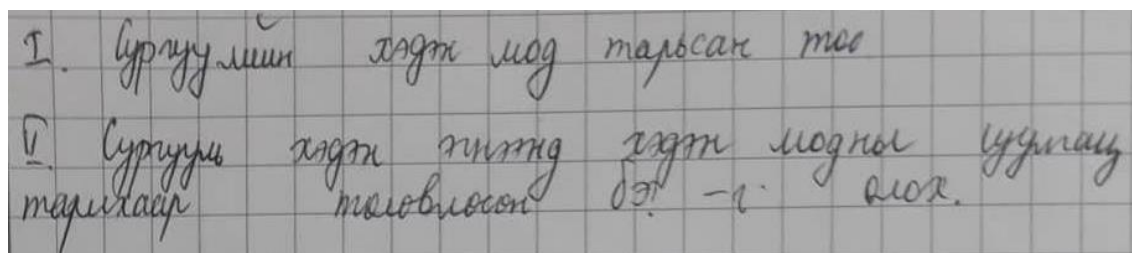 I. Сургуулийн хэдэн мод тарьсан тоо
II. Сургууль хэдэн энэнд хэдэн модны суулгац
тарихаар төлөвлөсөн бэ? -г олох.